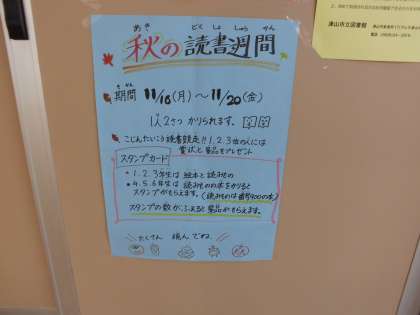 津山市立図書館
あき どくしょしゅうかん
秋の読書週間
きかん
期間 11/16(月)～11/20(金)
1人2さつ かりられます。
こじんたいこう読書競走!! 1.2.3位の人には
賞状と景品をプレゼント
スタンプカード
・1.2.3年生は 絵本と読みもの
・4.5.6年生は 読みものの本をかりると
スタンプがもらえます。(読みものは番号900の本)
スタンプの数がふえると景品がもらえます。
たくさん 読んでね。